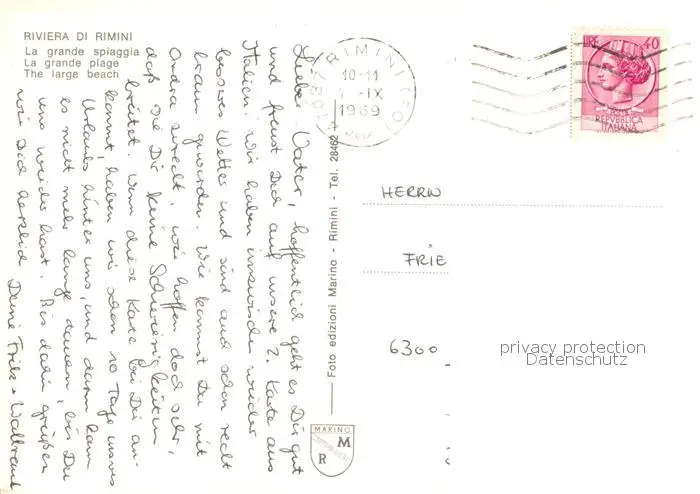 RIVIERA DI RIMINI
La grande spiaggia
La grande plage
The large beach
Lieber Vater, hoffentlich geht es Dir gut
und freust Dich auf unsere 2. Karte aus
Italien. Wir haben inzwischen wieder
besseres Wetter und sind auch schon recht
braun geworden. Wie kommst Du mit
Ondra zurecht, wir hoffen doch sehr,
daß sie Dir keine Schwierigkeiten
bereitet. Wenn diese Karte bei Dir an-
kommt, haben wir schon 10 Tage unseres
Urlaubs hinter uns, und dann kann
es nicht mehr lange dauern, bis Du
uns wieder hast. Bis dahin grüßen
wir Dich herzlich
Deine Fritz + Waltraut
Foto edizioni Marino - Rimini - Tel. 28462
MARINO
M
R
RIMINI
10-11
IX
1969
LIRE 40
REPVBBLICA
ITALIANA
HERRN
FRIE
6300
privacy protection
Datenschutz